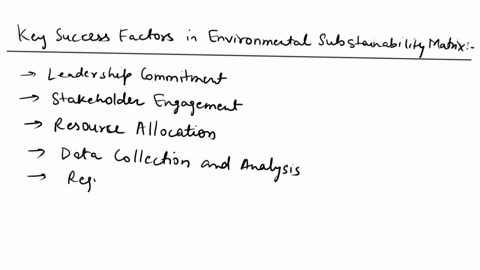 Key Success Factors in Environmental Substainability Matrix:-
→ Leadership Commitment
→ Stakeholder Engagement
→ Resource Allocation
→ Data Collection and Analysis
→ Reg